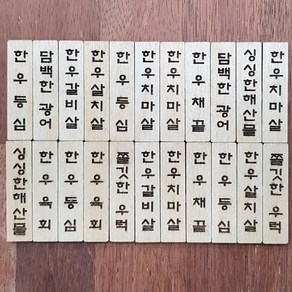 한우등심
담백한 광어
한우갈비살
한우살치살
한우등심
한우치마살
한우채끝
담백한 광어
싱싱한해산물
한우치마살
싱싱한해산물
한우육회
한우등심
한우육회
쫄깃한 우럭
한우갈비살
한우치마살
한우채끝
한우등심
한우살치살
쫄깃한 우럭